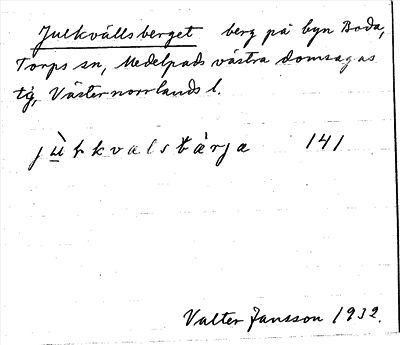 Julkvällsberget berg på byn Boda,
Torps sn, Medelpads västra domsagas
tg, Västernorrlands l.
141
Valter Jansson 1932.